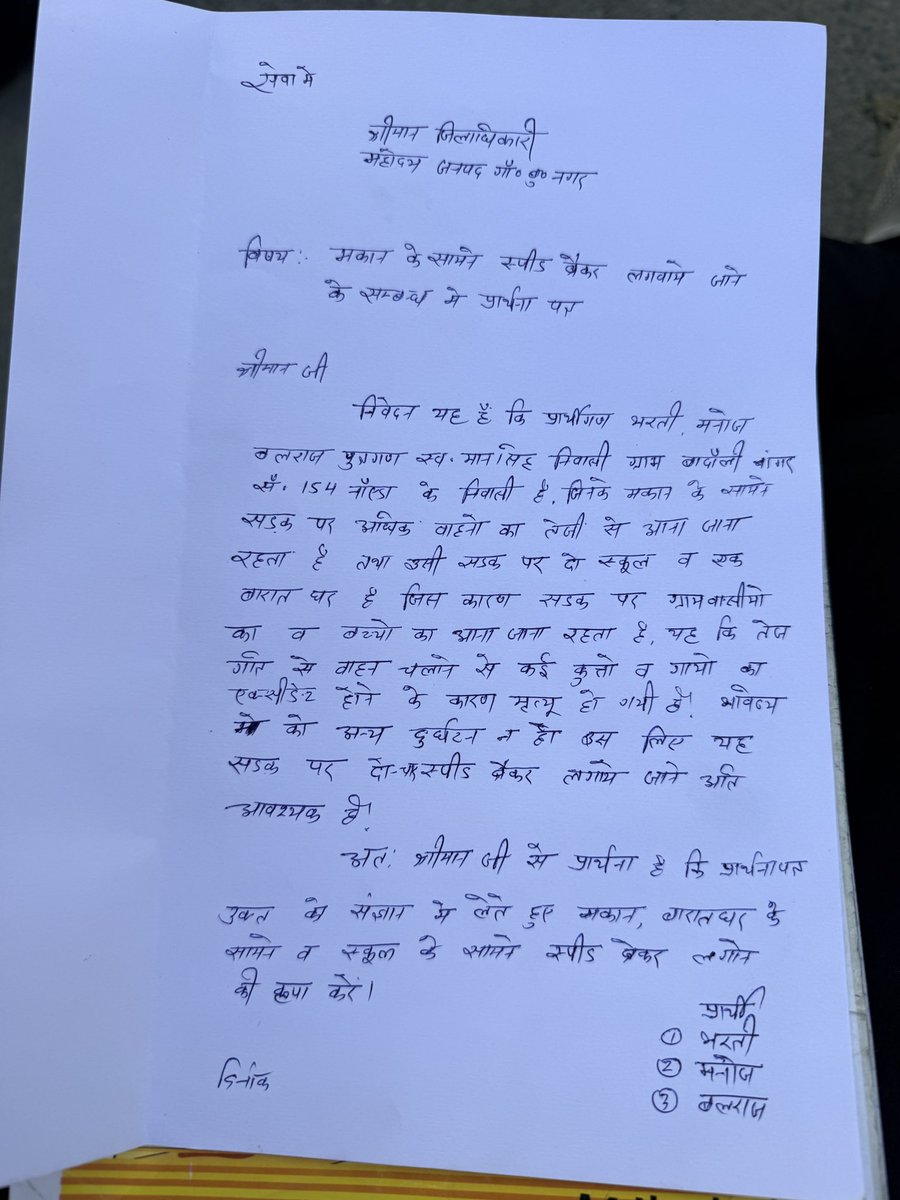 सेवा में
श्रीमान जिलाधिकारी
महोदय जनपद गौ० बु० नगर
विषय:- मकान के सामने स्पीड ब्रेकर लगवाये जाने
के सम्बन्ध मे प्रार्थना पत्र
श्रीमान जी
निवेदन यह है कि प्रार्थीगण भरती, मनोज
बलराज पुत्रगण स्व. मानसिंह निवासी ग्राम बादौली बांगर
सै. 154 नौएडा के निवासी है, जिनके मकान के सामने
सड़क पर अधिक वाहनो का तेजी से आना जाना
रहता है तथा इसी सडक पर दो स्कूल व एक
बारात घर है जिस कारण सडक पर ग्रामवासीयो
का व बच्चो का आना जाना रहता है, यह कि तेज
गति से वाहन चलाने से कई कुत्तो व गायो का
एक्सीडेन्ट होने के कारण मृत्यू हो गयी है। भविष्य
मे को अन्य दुर्घटन न हो इस लिए यह
सडक पर दो-चार स्पीड ब्रेकर लगाये जाने अति
आवश्यक है।
अत: श्रीमान जी से प्रार्थना है कि प्रार्थनापत्र
उक्त को संज्ञान मे लेते हुए मकान, बारातघर के
सामने व स्कूल के सामने स्पीड ब्रेकर लगाने
की कृपा करें।
प्रार्थी
① भरती
② मनोज
③ बलराज
दिनांक